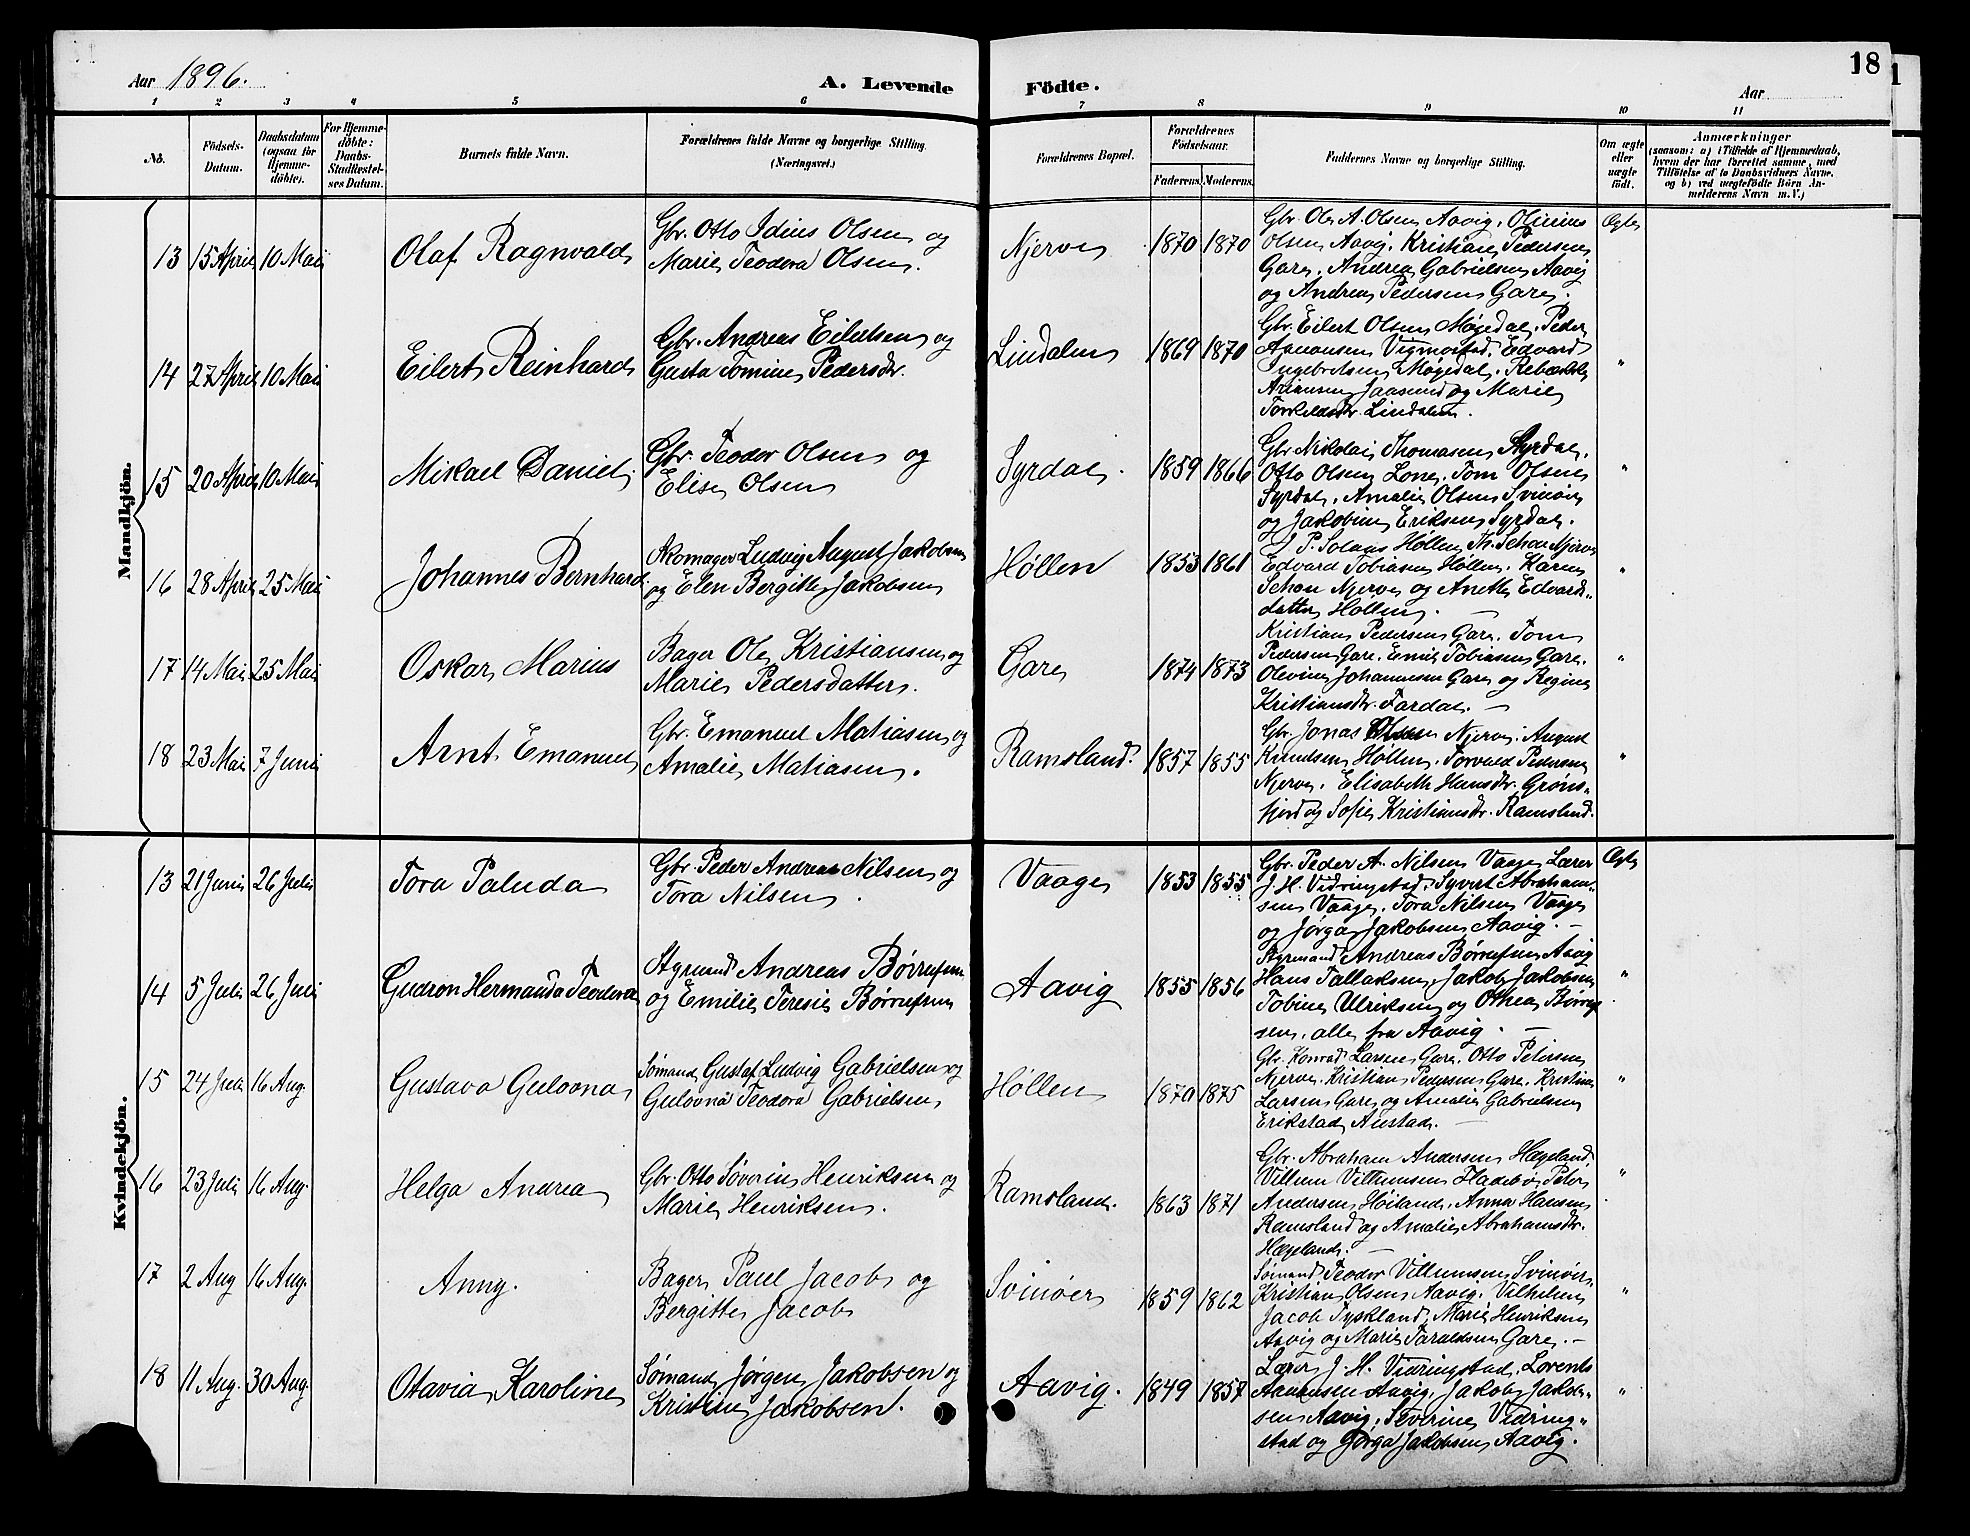 Aar 1896.
A. Levende
Födte.
18
Aar
1 2 3 4 5 6 7 8 9 10 11
No.
Födsels-
Datum.
Daabsdatum
(ogsaa för
Hjemme-
döbte).
For Hjemme-
döbte:
Daabs-
Stadfæstel-
ses Datum.
Barnets fulde Navn.
Forældrenes fulde Navne og borgerlige Stilling.
(Næringsvei.)
Forældrenes Bopæl.
Forældrenes
Födselsaar.
Faderens. Moderens.
Faddernes Navne og borgerlige Stilling.
Om ægte
eller
uægte
födt.
Anmærkninger
(saasom: a) i Tilfælde af Hjemmedaab,
hvem der har forrettet samme, med
Tilföielse af to Daabsvidners Navne,
og b) ved uægtefödte Börn An-
melderens Navn m.V.)
Mandkjön.
13 15 April 10 Mai
Olaf Ragnvald
Gbr. Otto Idius Olsen og
Marie Teodora Olsen.
Njerve
1870 1870
Gbr. Ole A. Olsen Aavig, Olinius
Olsen Aavig, Kristian Pedersen
Gare, Andrea Gabrielsen Aavig
og Andrea Pedersen Gare.
Ægte
14 27 April 10 Mai
Eilert Reinhard
Gbr. Andreas Eilertsen og
Gusta Tomine Pedersdr.
Lindalen
1869 1870
Gbr. Eilert Olsen Møgedal, Peder
Aanonsen Vigmostad, Edvard
Ingebretsen Møgedal, Rebekka
Arianson Jaasund og Marie
Torkildsdr. Lindalen.
"
15 20 April 10 Mai
Mikael Daniel
Gbr. Teodor Olsen og
Elise Olsen
Syrdal.
1859 1866
Gbr. Nikolai Thomasen Syrdal,
Otto Olsen Lone, Tom Olsen
Syrdal, Amalie Olsen Svinør
og Jakobine Eriksen Syrdal.
"
16 28 April 25 Mai
Johannes Bernhard
Skomager Ludvig August Jakobsen
og Elen Bergitte Jakobsen
Høllen
1853 1861
J. P. Solaas Høllen, Th. Schou Njerve
Edvard Tobiasen Høllen, Karen
Schou Njerve og Anette Edvards-
datter Høllen.
"
17 14 Mai 25 Mai
Oskar Marius
Bager Ole Kristiansen og
Marie Pedersdatter.
Gare
1874 1873
Kristian Pedersen Gare, Tom
Pedersen Gare, Emil Tobiasen Gare,
Olevine Johannesen Gare og Regine
Kristiansdr. Fardal.
"
18 23 Mai 7 Juni
Arnt Emanuel
Gbr. Emanuel Matiasen og
Amalie Matiasen.
Ramsland.
1857 1855
Gbr. Jonas Olsen Njerve, August
Knudsen Høllen, Torvald Pedersen
Njerve, Elisabeth Hansdr. Grøns-
fjord og Sofie Kristiansdr. Ramsland.
"
Kvindekjön.
13 21 Juni 26 Juli
Tora Paluda
Gbr. Peder Andreas Nilsen og
Tora Nilsen.
Vaage
1853 1855
Gbr. Peder A. Nilsen Vaage, Lærer
J. H. Vidringstad, Syvert Abraham-
sen Vaage, Tora Nilsen Vaage
og Jørga Jakobsen Aavig.
Ægte
14 5 Juli 26 Juli
Gudron Hermanda Teodora
Styrmand Andreas Børrufsen
og Emilie Teresie Børrufsen
Aavig
1855 1856
Styrmand Andreas Børrufsen Aavig
Hans Tallaksen, Jakob Jakobsen
Tobine Ulriksen og Othea Børruf
sen, alle fra Aavig.
"
15 24 Juli 16 Aug.
Gustava Gulovna
Sømand Gustaf Ludvig Gabrielsen og
Gulovna Teodora Gabrielsen
Høllen
1870 1875
Gbr. Konrad Larsen Gare, Otto Petersen
Njerve, Kristian Pedersen Gare, Kristine
Larsen Gare og Amalie Gabrielsen
Erikstad, Austad.
"
16 23 Juli 16 Aug.
Helga Andrea
Gbr. Otto Søverin Henriksen og
Marie Henriksen.
Ramsland.
1863 1871
Gbr. Abraham Andersen Hægeland,
Villum Villumsen Peter
Andersen Høiland, Anna Hansen
Ramsland og Amalie Abrahamsdr.
Hægeland.
"
17 2 Aug 16 Aug.
Anny.
Bager Paul Jacob og
Bergitte Jacob
Svinøer
1859 1862
Sømand Teodor Villumsen Svinøer,
Kristian Olsen Aavig, Vilhelm
Jacob Tyskland, Marie Henriksen
Aavig og Marie Taraldsen Gare.
"
18 11 Aug. 30 Aug.
Otavia Karoline
Sømand Jørgen Jakobsen og
Kristine Jakobsen.
Aavig.
1849 1857
Lærer J. H. Vidringstad, Lorents
Aanonsen Aavig, Jakob Jakob-
sen Aavig, Severine Vidring-
stad og Gørga Jakobsen Aavig.
"